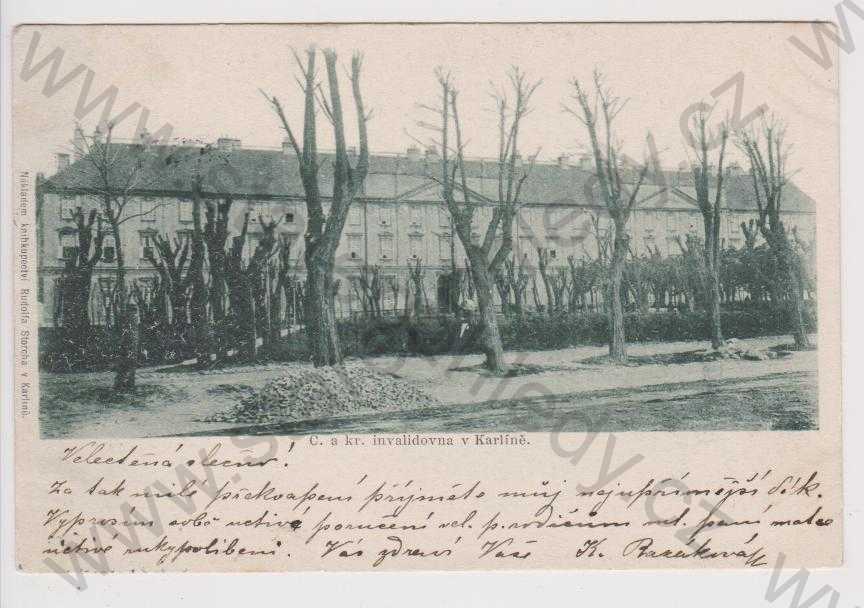 Nákladem knihkupectví Rudolfa Storcha v Karlíně.
C. a kr. invalidovna v Karlíně.
Velectěná slečno!
Za tak milé překvapení přijměte můj nejupřímnější dík.
Vyprosím sobě uctivé poručení vel. p. rodičům ml. paní matce
uctivé rukypolíbení. Vás zdraví Vaše K. Bazáková